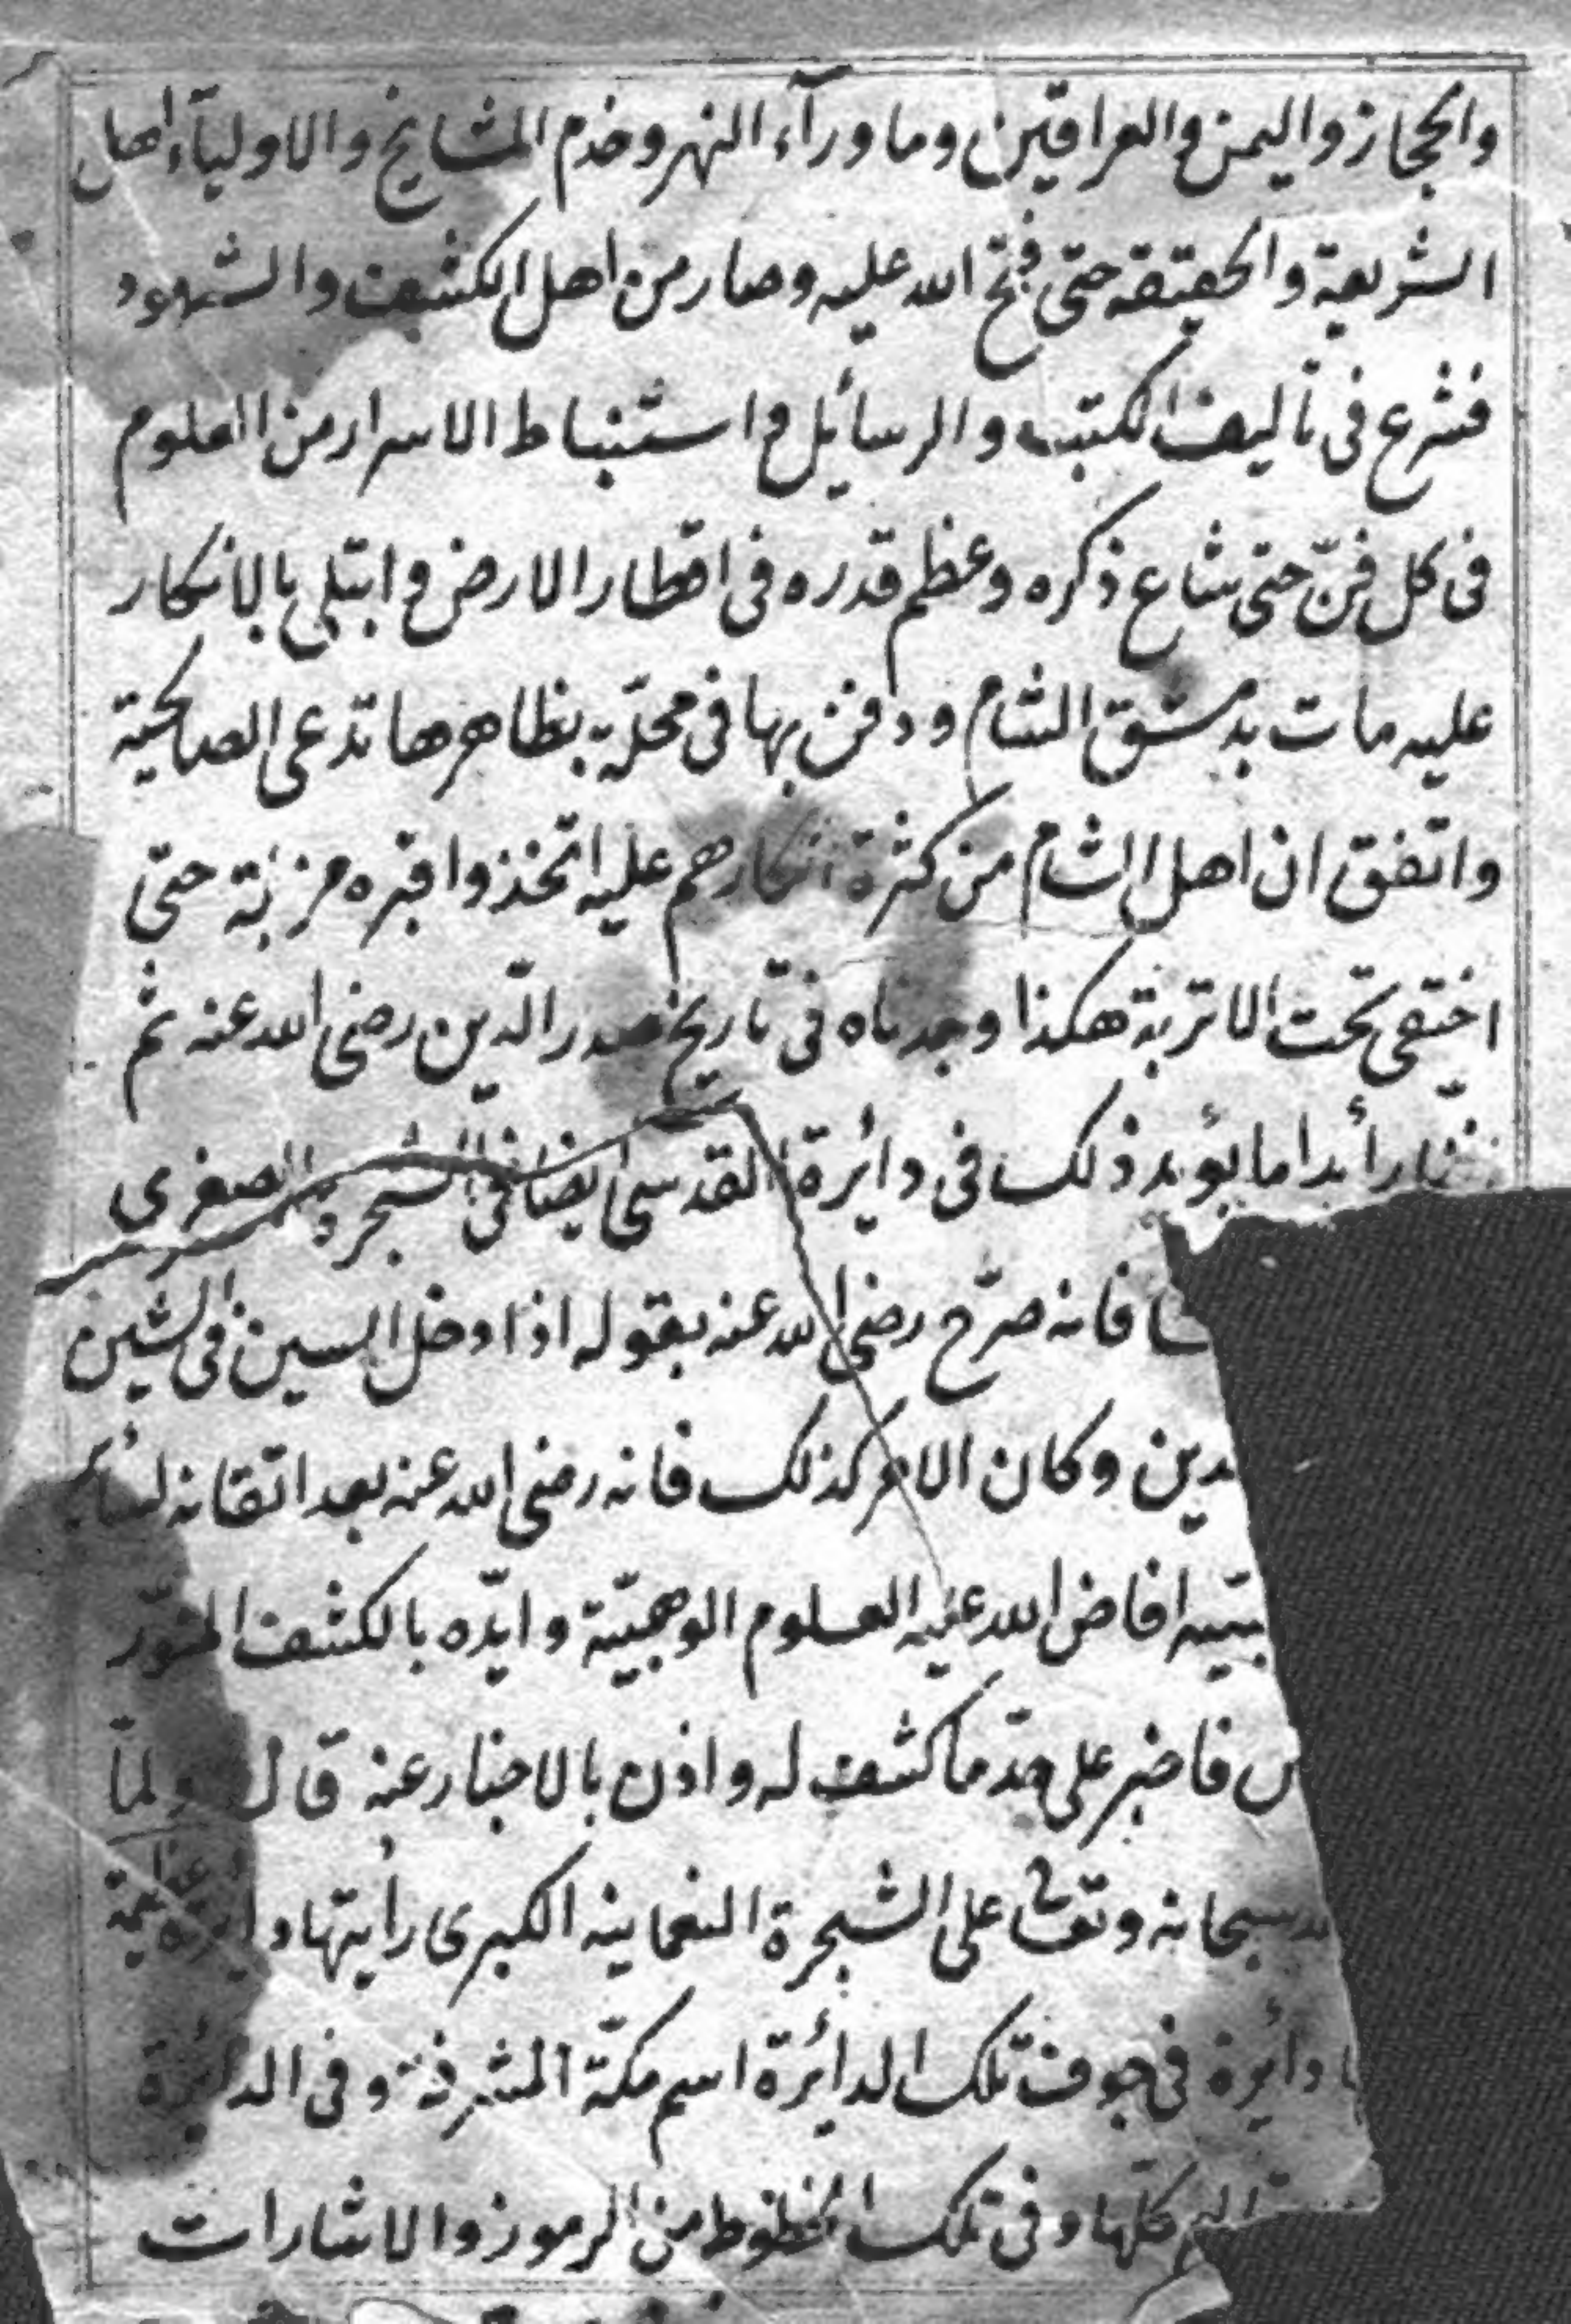 والحجاز واليمن والعراقين وما ورآء النهر وخدم المشايخ والاوليآء اهل
الشريعة والحقيقة حتى فتح الله عليه وصار من اهل الكشف والشهود
فشرع فى تأليف الكتب والرسائل واستنباط الاسرار من العلوم
فى كل فنّ حتى شاع ذكره وعظم قدره فى اقطار الارض وابتلى بالانكار
عليه مات بدمشق الشام ودفن بها فى محلّة بظاهرها تدعى الصالحية
واتفق ان اهل الشام من كثرة انكارهم عليه اتخذوا قبره مزبلة حتى
اختفى تحت الاتربة هكذا وجدناه فى تاريخ صدر الدّين رضى الله عنه ثم
ما يؤيد ذلك فى دائرة القدسى ايضا فى الشجرة الصغرى
فانه صرّح رضى الله عنه بقوله اذا دخل السين فى الشين
وكان الامر كذلك فانه رضى الله عنه بعد اتقانه لسائر
افاض الله عليه العلوم الوهبيّة وايّده بالكشف المنوّر
فاخبر على حدّ ما كشف له واذن بالاخبار عنه قال ولمّا
سبحانه وتعالى على الشجرة النعمانية الكبرى رأيتها دائرة عظيمة
دائرة فى جوف تلك الدائرة اسم مكّة المشرفة وفى الدائرة
كلّها وفى تلك الخطوط من الرموز والاشارات